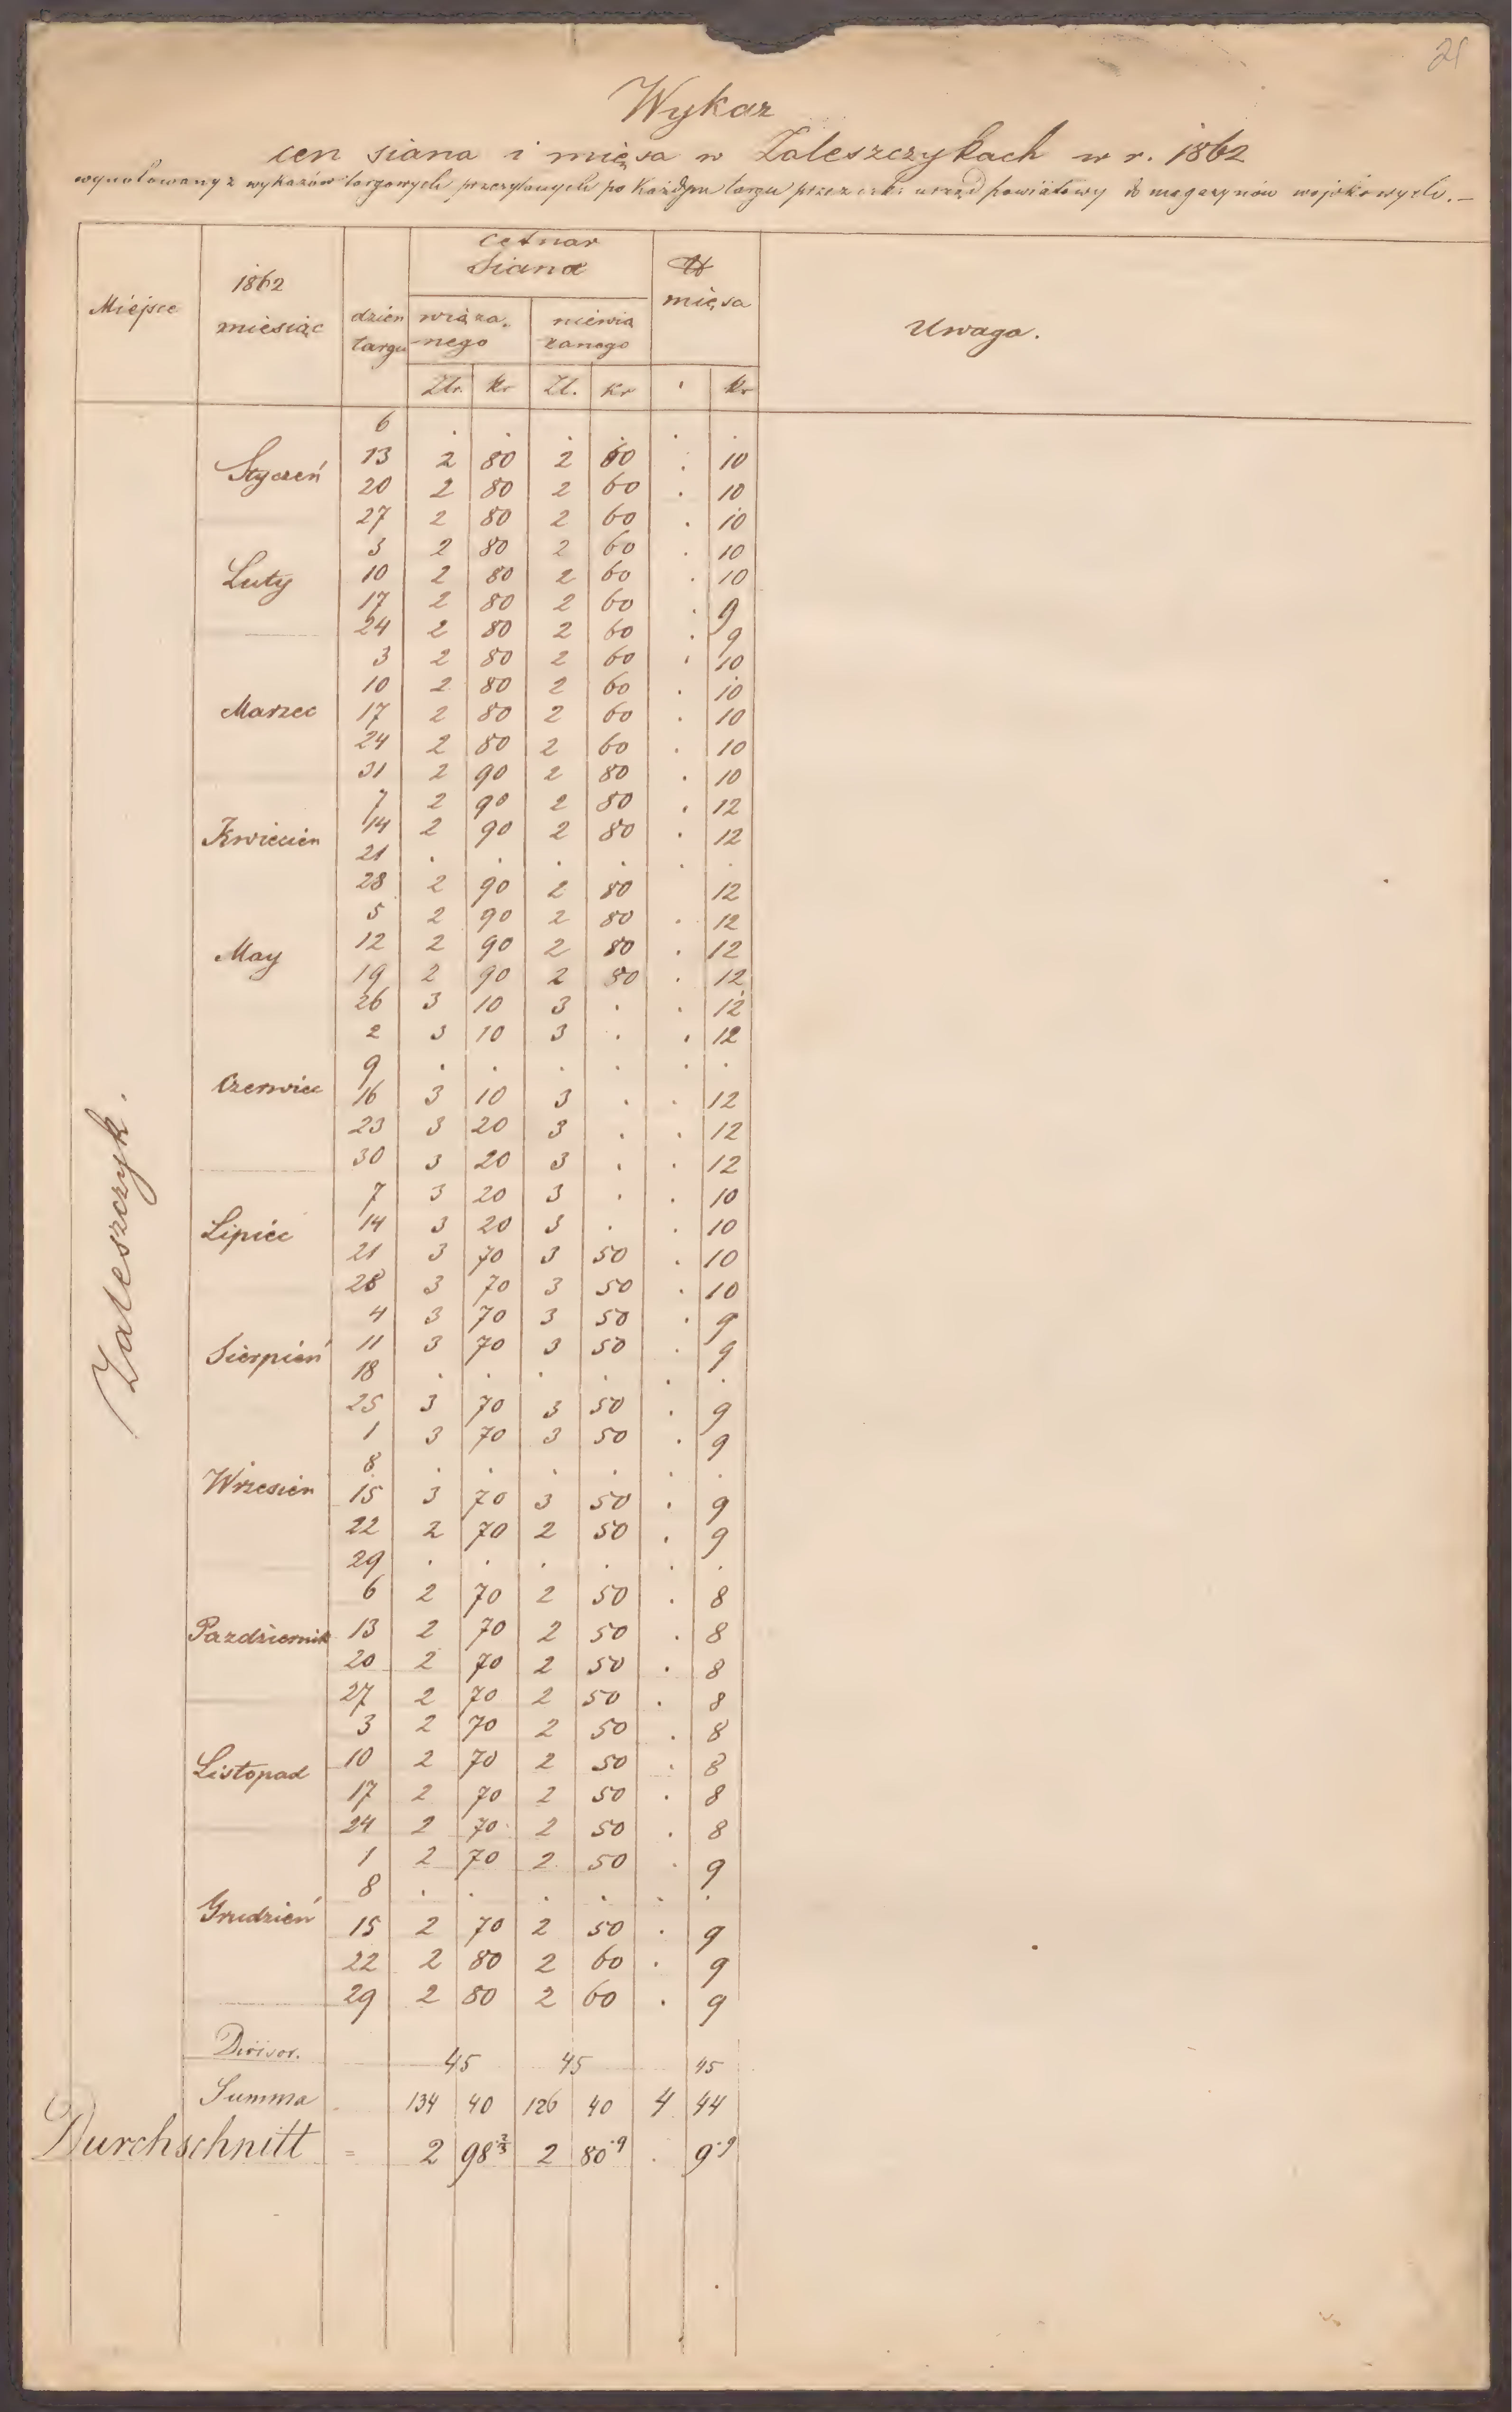 21
Wykaz
cen siana i mięsa w Zaleszczykach w r. 1862
wynotowany z wykazów targowych przesyłanych po każdym targu przez urząd powiatowy do magazynów wojskowych.—
Miejsce 1862 miesiąc dzien targu cetnar Siana ℔ mięsa Uwaga.
wiąza.nego niewiązanego
Złr. kr Zł. kr . kr
Zaleszczyk.
6 . . . . . .
Styczeń 13 2 80 2 60 . 10
20 2 80 2 60 . 10
27 2 80 2 60 . 10
3 2 80 2 60 . 10
Luty 10 2 80 2 60 . 10
17 2 80 2 60 . 9
24 2 80 2 60 . 9
3 2 80 2 60 . 10
10 2 80 2 60 . 10
Marzec 17 2 80 2 60 . 10
24 2 80 2 60 . 10
31 2 90 2 80 . 10
7 2 90 2 80 . 12
Kwiecien 14 2 90 2 80 . 12
21 . . . . . .
28 2 90 2 80 12
5 2 90 2 80 . 12
May 12 2 90 2 80 . 12
19 2 90 2 80 . 12
26 3 10 3 . . 12
2 3 10 3 . . 12
9 . . . . . .
Czerwiec 16 3 10 3 . . 12
23 3 20 3 . . 12
30 3 20 3 . . 12
7 3 20 3 . . 10
Lipiec 14 3 20 3 . . 10
21 3 70 3 50 . 10
28 3 70 3 50 . 10
4 3 70 3 50 . 9
Sierpień 11 3 70 3 50 . 9
18 . . . . . .
25 3 70 3 50 . 9
1 3 70 3 50 . 9
8 . . . . . .
Wrzesien 15 3 70 3 50 . 9
22 2 70 2 50 . 9
29 . . . . . .
6 2 70 2 50 . 8
Pazdziernik 13 2 70 2 50 . 8
20 2 70 2 50 . 8
27 2 70 2 50 . 8
3 2 70 2 50 . 8
Listopad 10 2 70 2 50 . 8
17 2 70 2 50 . 8
24 2 70 2 50 . 8
1 2 70 2 50 . 9
8 . . . . . .
Grudzień 15 2 70 2 50 . 9
22 2 80 2 60 . 9
29 2 80 2 60 . 9
Divisor. 45 45 45
Summa 134 40 126 40 4 44
Durchschnitt = 2 98⅔ 2 80·9 . 9·9